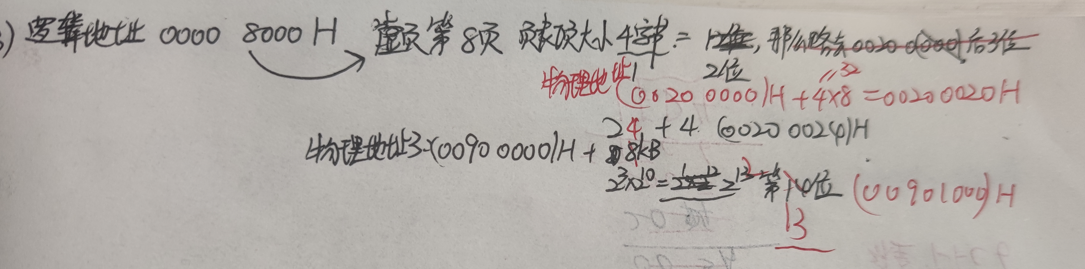 ) 逻辑地址 0000 8000H 虚页第8页 页表项大小4字节 =
2位
物理地址1 (0020 0000)H + 4×8 = 00200020H
32
24 + 4 (0020 0024)H
物理地址3:(00900000)H + 8kB
2³×2¹⁰ = 2¹³ 第 位 (00901000)H
13